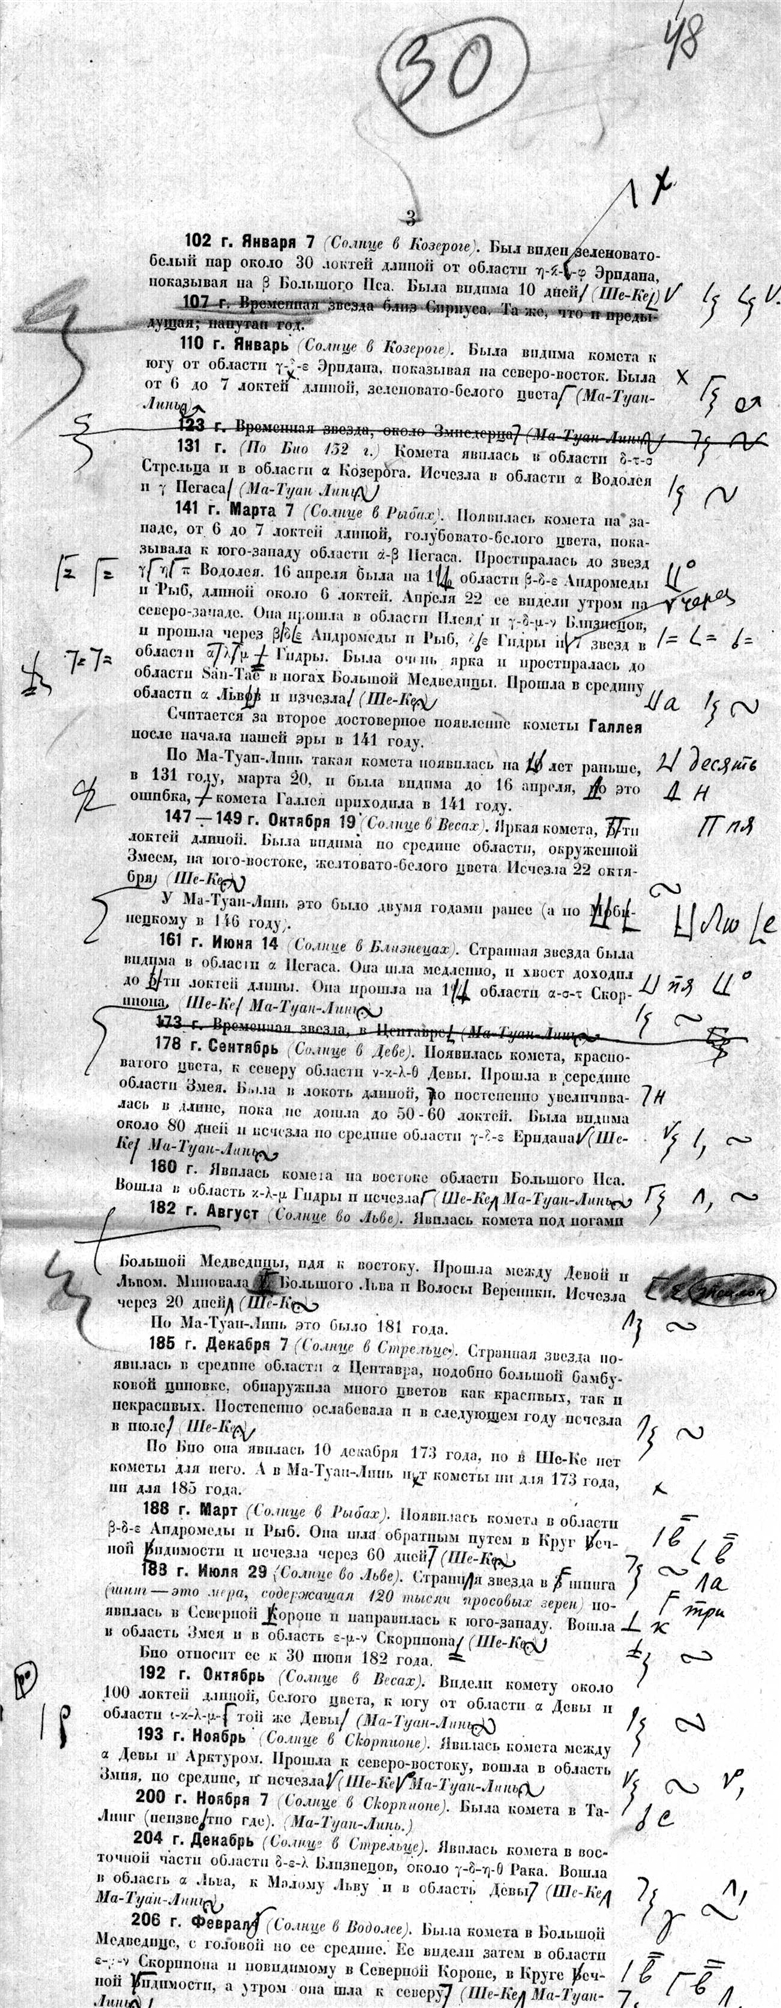 30
48
3
102 г. Января 7 (Солнце в Козероге). Был виден зеленовато-
белый пар около 30 локтей длиной от области Эридана,
показывая на β Большого Пса. Была видима 10 дней (Ше-Ке)
107 г. Временная звезда близ Сириуса. Та же, что и преды-
дущая; напутан год.
110 г. Январь (Солнце в Козероге). Была видима комета к
югу от области Эридана, показывая на северо-восток. Была
от 6 до 7 локтей длиной, зеленовато-белого цвета (Ма-Туан-
Линь)
123 г. Временная звезда, около (Ма-Туан-Линь)
131 г. (По Био 132 г.) Комета явилась в области δ-τ-σ
Стрельца и в области α Козерога. Исчезла в области α Водолея
и γ Пегаса (Ма-Туан Линь)
141 г. Марта 7 (Солнце в Рыбах). Появилась комета на за-
паде, от 6 до 7 локтей длиной, голубовато-белого цвета, пока-
зывала к юго-западу области α-β Пегаса. Простиралась до звезд
γ η π Водолея. 16 апреля была на области β-δ-ε Андромеды
и Рыб, длиной около 6 локтей. Апреля 22 ее видели утром на
через
северо-западе. Она прошла в области Плеяд и γ-δ-μ-ν Близнецов,
и прошла через β δ ε Андромеды и Рыб, Гидры и 7 звезд в
области α λ μ Гидры. Была очень ярка и простиралась до
области San-Taë в ногах Большой Медведицы. Прошла в средину
области α Львов и изчезла (Ше-Ке)
а
Считается за второе достоверное появление кометы Галлея
после начала нашей эры в 141 году.
По Ма-Туан-Линь такая комета появилась на 10 лет раньше,
десять
в 131 году, марта 20, и была видима до 16 апреля, это
н
ошибка, комета Галлея приходила в 141 году.
147—149 г. Октября 19 (Солнце в Весах). Яркая комета, 5-ти
пя
локтей длиной. Была видима по средине области, окруженной
Змеем, на юго-востоке, желтовато-белого цвета. Исчезла 22 октя-
бря (Ше-Ке)
У Ма-Туан-Линь это было двумя годами ранее (а по Моби-
нецкому в 146 году).
161 г. Июня 14 (Солнце в Близнецах). Странная звезда была
видима в области α Пегаса. Она шла медленно, и хвост доходил
до 5-ти локтей длины. Она прошла на области α-σ-τ Скор-
пя
пиона (Ше-Ке Ма-Туан-Линь)
173 г. Временная звезда, в Центавре (Ма-Туан-Линь)
178 г. Сентябрь (Солнце в Деве). Появилась комета, красно-
ватого цвета, к северу области ν-κ-λ-θ Девы. Прошла в середине
области Змея. Была в локоть длиной, но постепенно увеличива-
н
лась в длине, пока не дошла до 50-60 локтей. Была видима
около 80 дней и исчезла по средине области γ-δ-ε Еридана (Ше-
Ке Ма-Туан-Линь)
180 г. Явилась комета на востоке области Большого Пса.
Вошла в область κ-λ-μ Гидры и исчезла (Ше-Ке Ма-Туан-Линь)
182 г. Август (Солнце во Льве). Явилась комета под ногами
Большой Медведицы, идя к востоку. Прошла между Девой и
Львом. Миновала Большого Льва и Волосы Вереники. Исчезла
через 20 дней (Ше-Ке)
По Ма-Туан-Линь это было 181 года.
185 г. Декабря 7 (Солнце в Стрельце). Странная звезда по-
явилась в средине области α Центавра, подобно большой бамбу-
ковой циновке, обнаружила много цветов как красивых, так и
некрасивых. Постепенно ослабевала и в следующем году исчезла
в июле (Ше-Ке)
По Био она явилась 10 декабря 173 года, но в Ше-Ке нет
кометы для него. А в Ма-Туан-Линь нет кометы ни для 173 года,
ни для 185 года.
188 г. Март (Солнце в Рыбах). Появилась комета в области
β-δ-ε Андромеды и Рыб. Она шла обратным путем в Круг Веч-
в в
ной Видимости и исчезла через 60 дней (Ше-Ке)
188 г. Июля 29 (Солнце во Льве). Странная звезда в 3 шинга
ла
(шинг—это мера, содержащая 120 тысяч просовых зерен) по-
три
явилась в Северной Короне и направилась к юго-западу. Вошла
к
в область Змея и в область ε-μ-ν Скорпиона (Ше-Ке)
Био относит ее к 30 июня 182 года.
192 г. Октябрь (Солнце в Весах). Видели комету около
100 локтей длиной, белого цвета, к югу от области α Девы и
области ι-κ-λ-μ той же Девы (Ма-Туан-Линь)
193 г. Ноябрь (Солнце в Скорпионе). Явилась комета между
α Девы и Арктуром. Прошла к северо-востоку, вошла в область
Змия, по средине, и исчезла (Ше-Ке Ма-Туан-Линь)
200 г. Ноября 7 (Солнце в Скорпионе). Была комета в Та-
Линг (неизвестно где). (Ма-Туан-Линь.)
с
204 г. Декабрь (Солнце в Стрельце). Явилась комета в вос-
точной части области δ-ε-λ Близнецов, около γ-δ-η-θ Рака. Вошла
в область α Льва, к Малому Льву и в область Девы (Ше-Ке
Ма-Туан-Линь)
206 г. Февраль (Солнце в Водолее). Была комета в Большой
Медведице, с головой по ее средине. Ее видели затем в области
Скорпиона и повидимому в Северной Короне, в Круге Веч-
в в
ной Видимости, а утром она шла к северу (Ше-Ке Ма-Туан-
Линь)